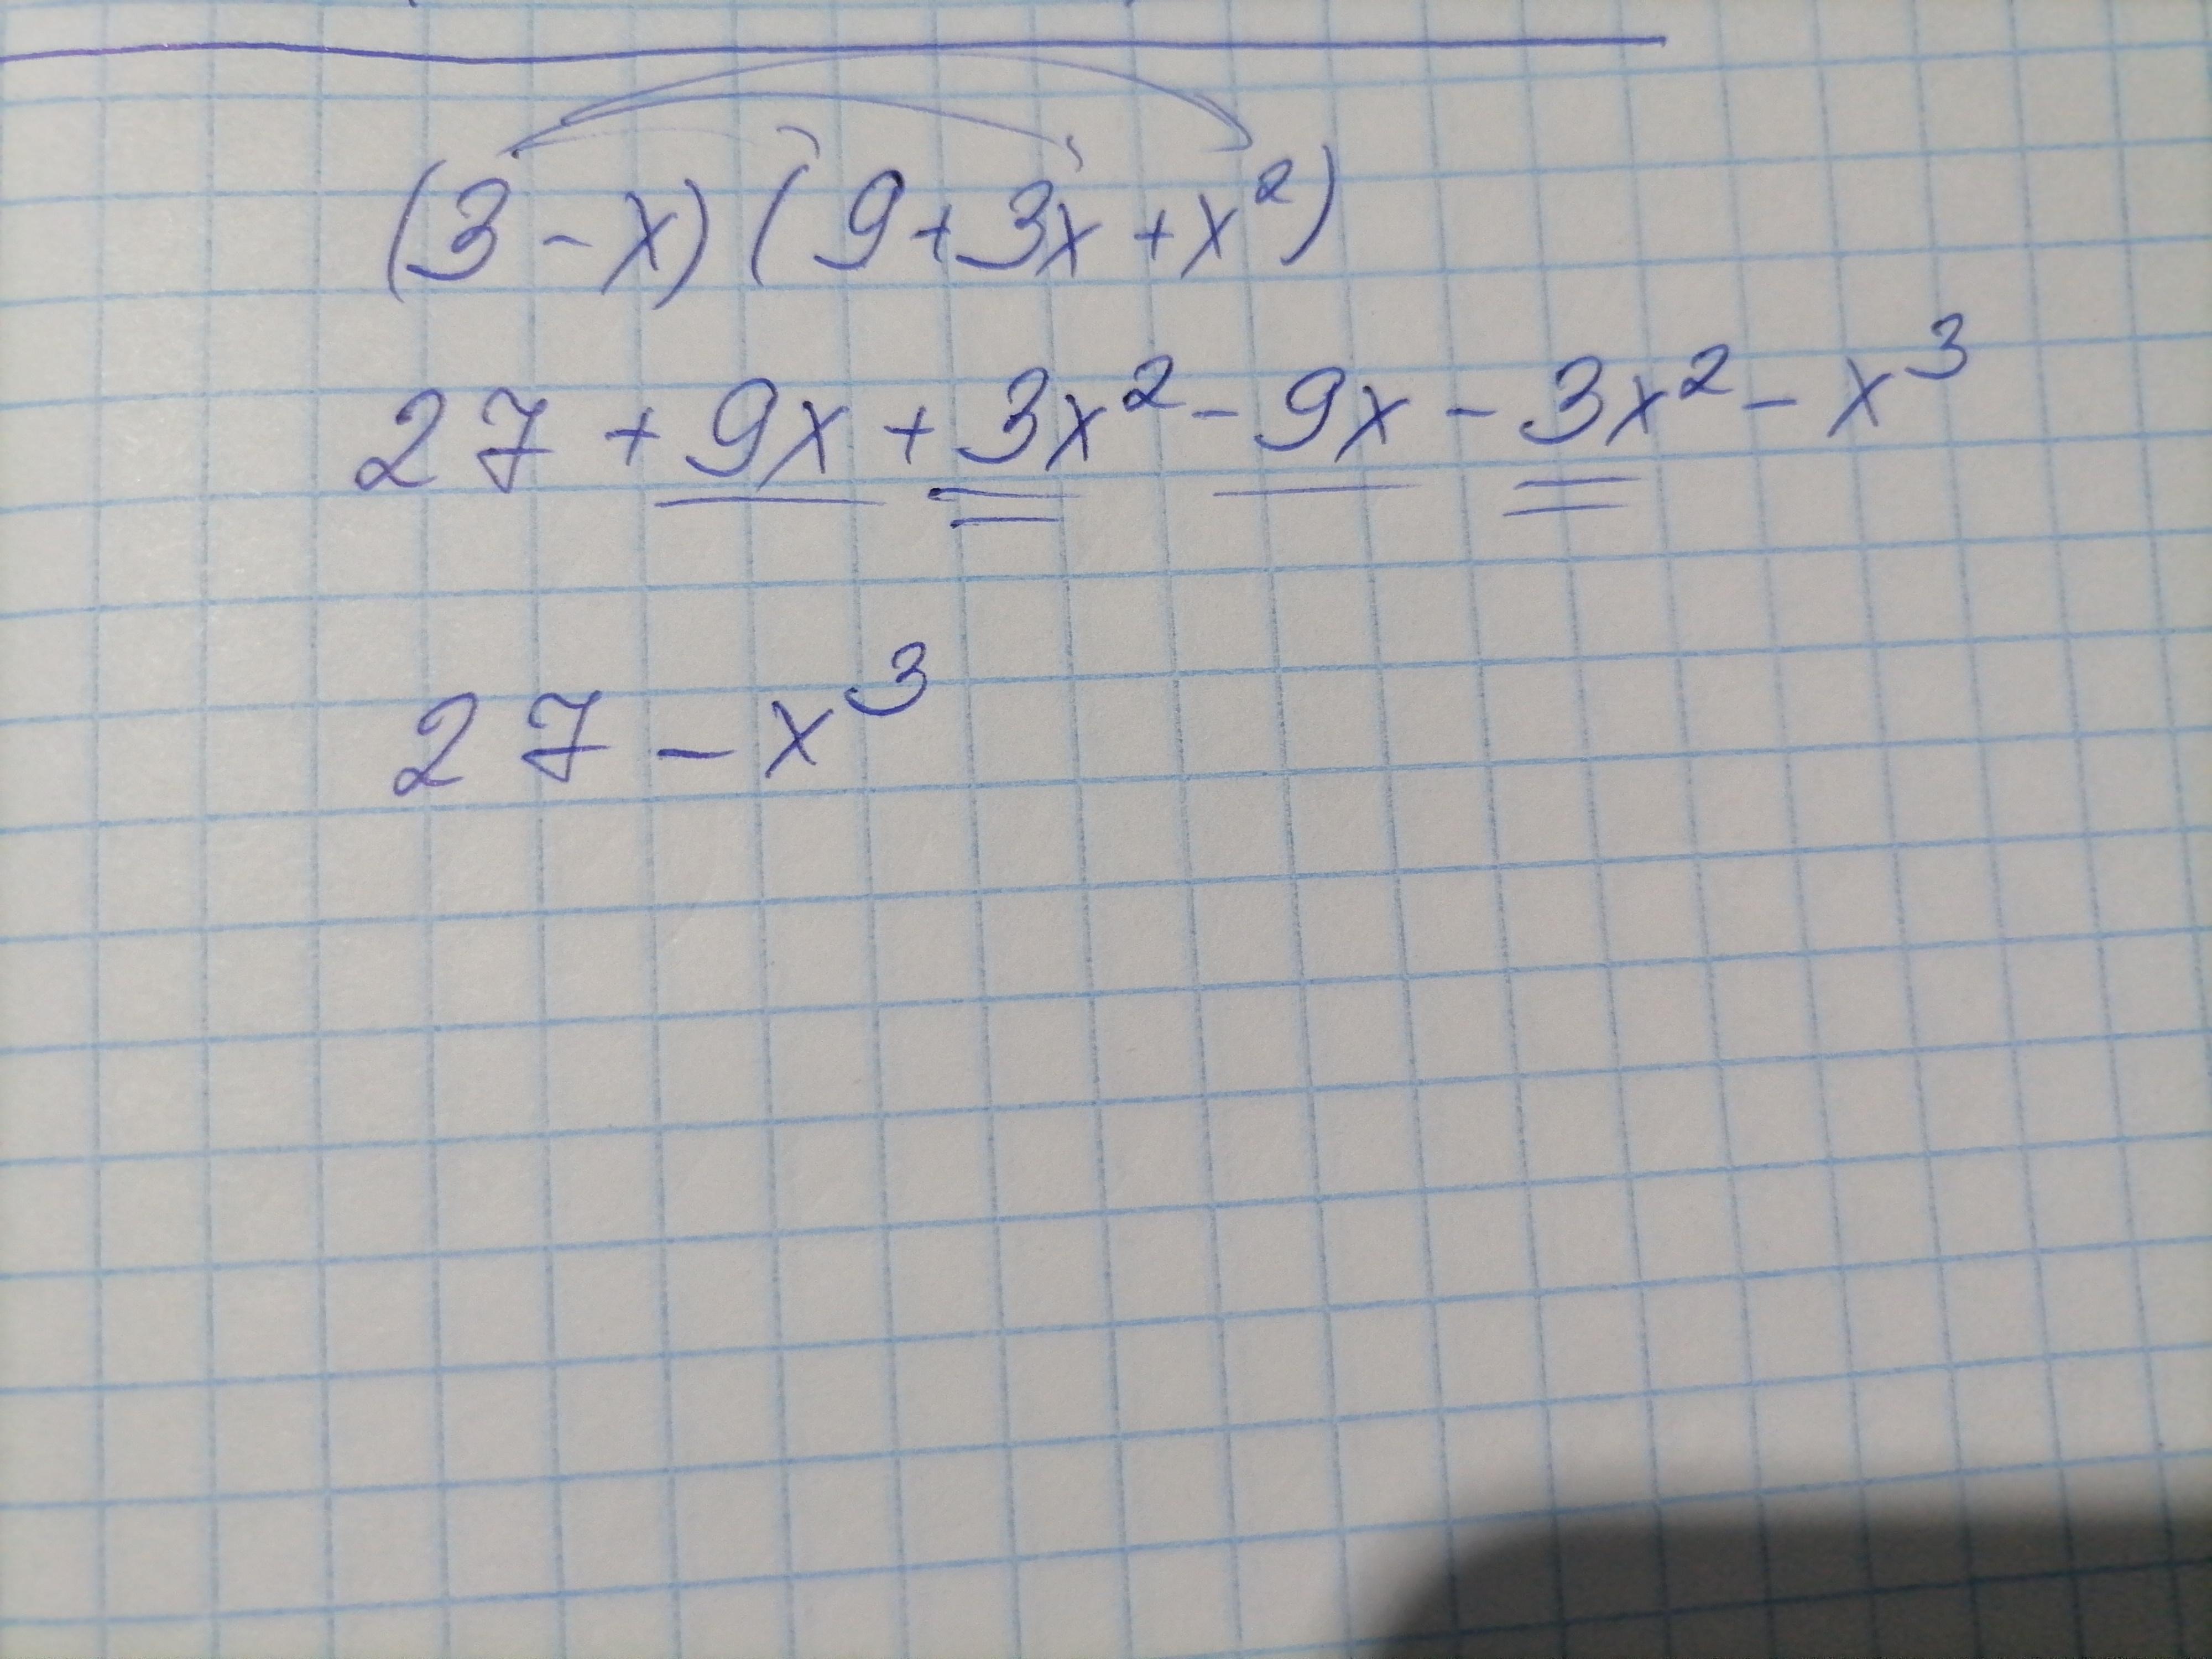 (3-x)(9+3x+x²)
27+9x+3x²-9x-3x²-x³
27-x³